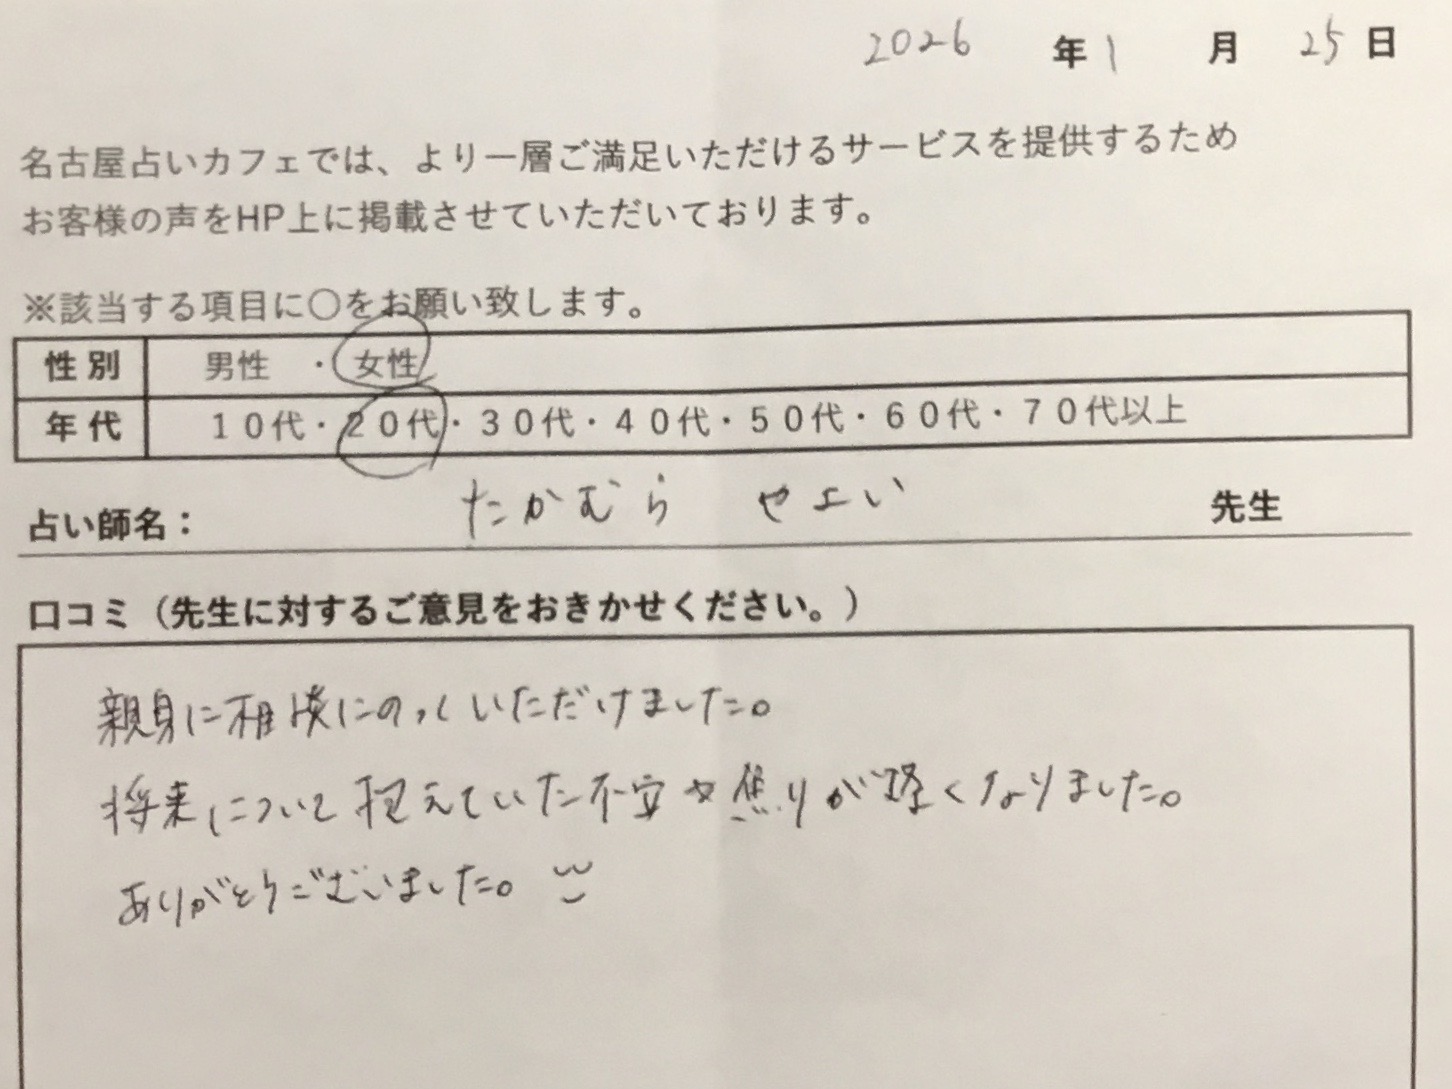 2026 年 1 月 25 日
名古屋占いカフェでは、より一層ご満足いただけるサービスを提供するため
お客様の声をHP上に掲載させていただいております。
※該当する項目に〇をお願い致します。
性別 男性 ・ 女性
年代 10代・20代・30代・40代・50代・60代・70代以上
占い師名： たかむら やよい 先生
口コミ（先生に対するご意見をおきかせください。）
親身に相談にのっていただけました。
将来について抱えていた不安や焦りが軽くなりました。
ありがとうございました。